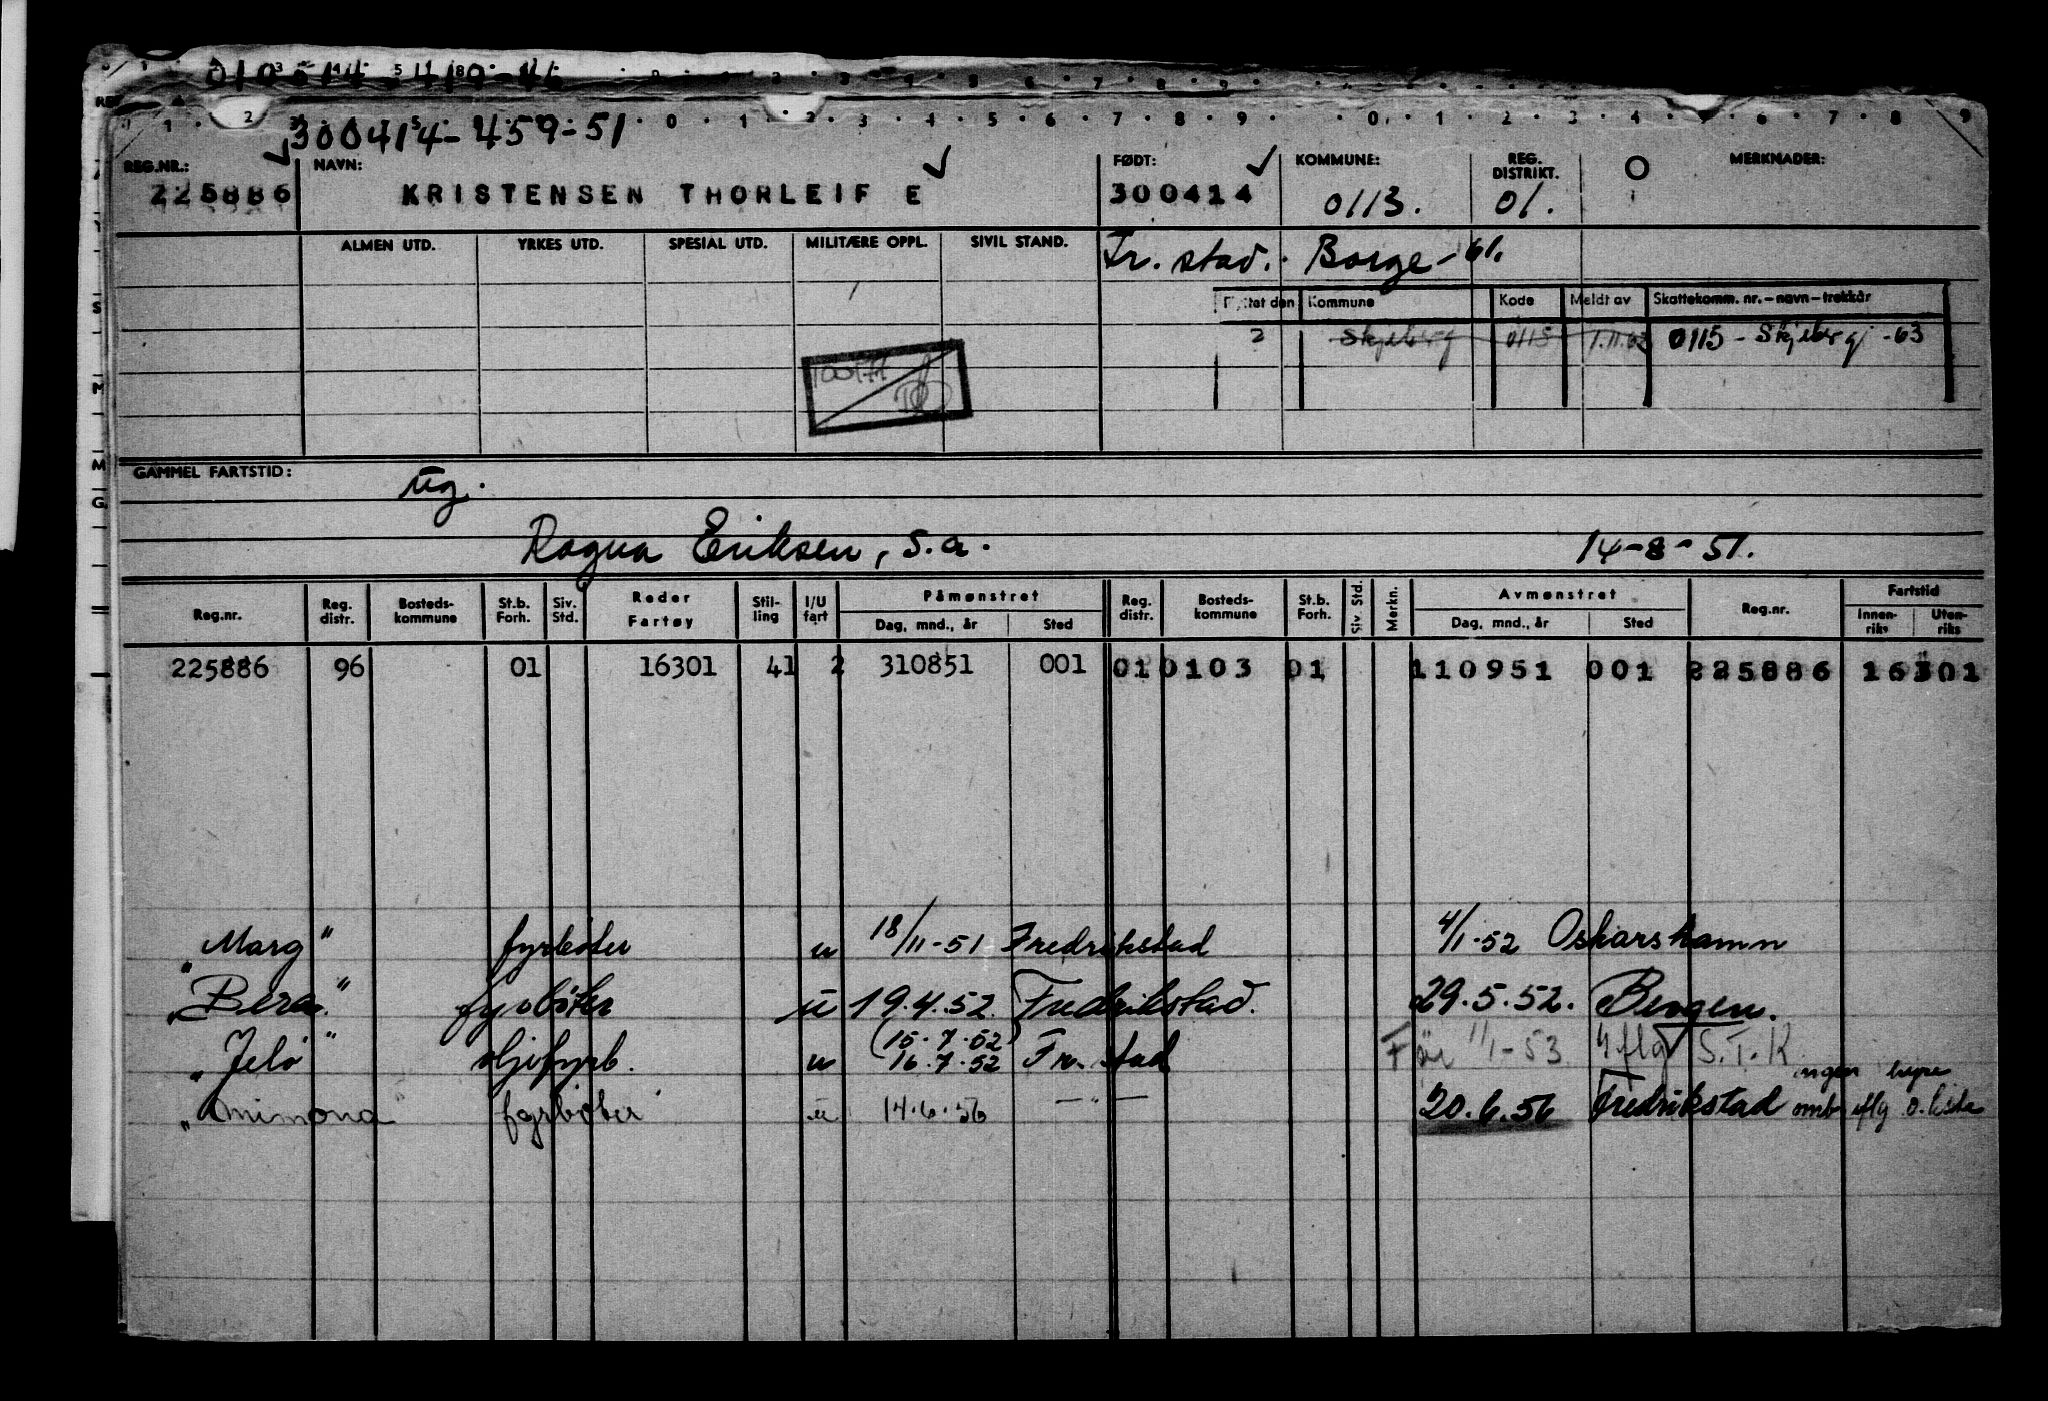 300414-459-51
REG.NR.: NAVN: FØDT: KOMMUNE: REG. DISTRIKT. MERKNADER:
225886 KRISTENSEN THORLEIF E 300414 0113. 01.
ALMEN UTD. YRKES UTD. SPESIAL UTD. MILITÆRE OPPL. SIVIL STAND. Fr.stad. Borge-61.
Kommune Kode Meldt av Skattekomm. nr.-navn-trekkår
2 Skjeberg 0115 1.11.62 0115 - Skjeberg -63
GAMMEL FARTSTID: ug.
Ragna Eriksen, s.a. 14-8-51.
Reg.nr. Reg. distr. Bosteds-kommune St.b. Forh. Siv. Std. Reder Fartøy Stil-ling I/U fart Påmønstret Dag, mnd., år Sted Reg. distr. Bosteds-kommune St.b. Forh. Siv. Std. Merkn. Avmønstret Dag, mnd., år Sted Reg.nr. Fartstid Innen-riks Uten-riks
225886 96 01 16301 41 2 310851 001 01 0103 01 110951 001 225886 16301
"Marg" fyrbøter u 18/11-51 Fredrikstad 4/1-52 Oskarshamn
"Bera" fyrbøter u 19.4.52. Fredrikstad. 29.5.52. Bergen.
(15.7.52)
"Jelø" oljefyrb. u 16.7.52 Fr.stad Før 1/1-53 iflg S.T.K
ingen hyre
"Mimona" fyrbøter u 14.6.56 -"- 20.6.56 Fredrikstad omb. iflg o.liste